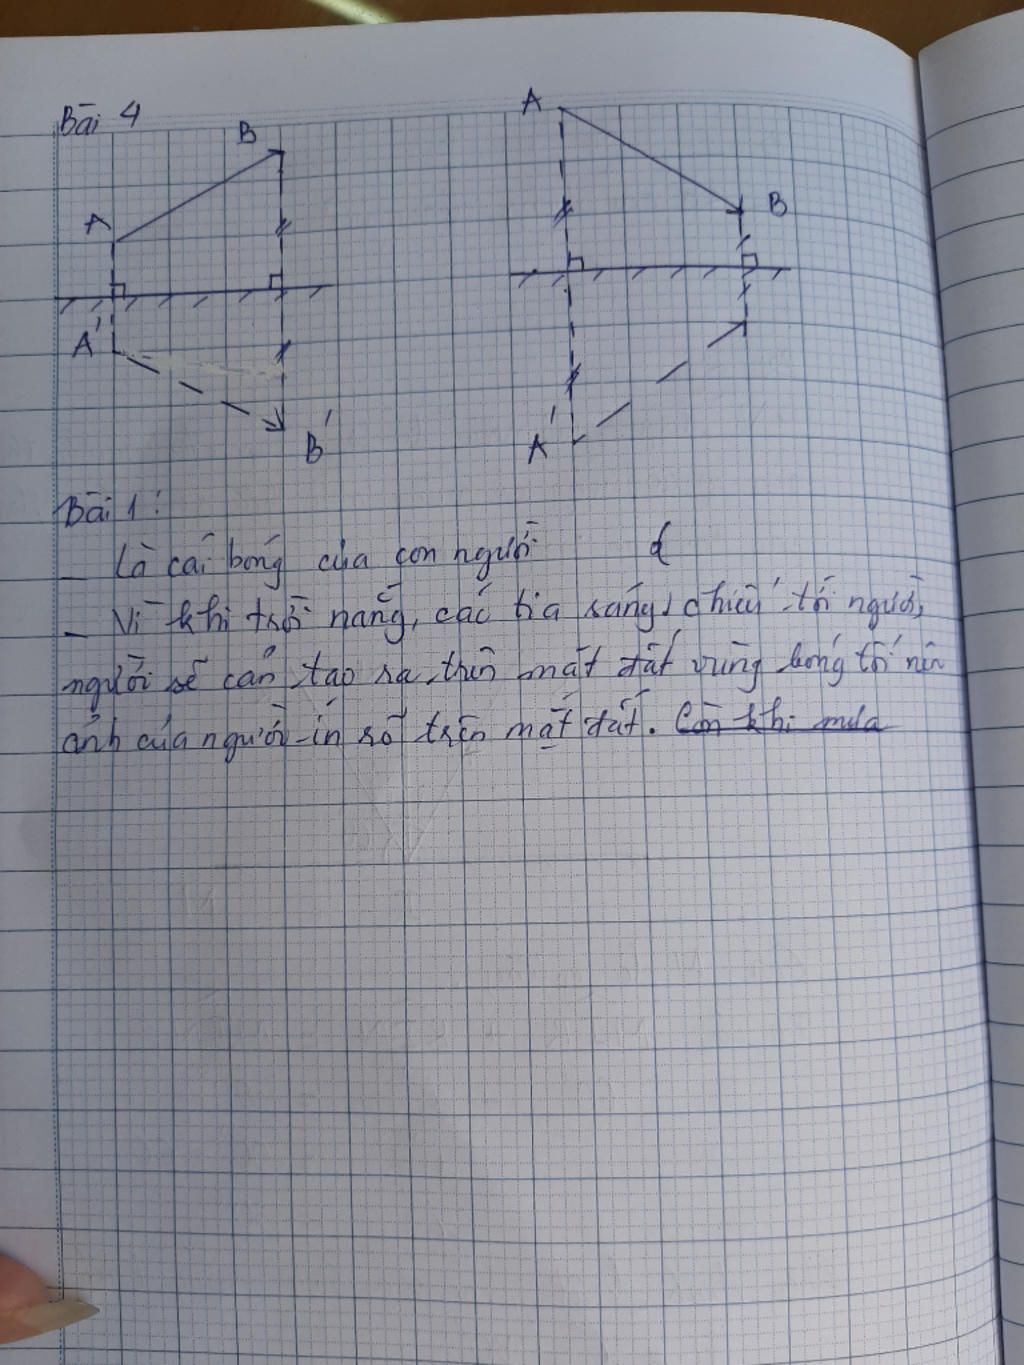 Bài 4
B
A
A'
B'
A
B
A'
Bài 1:
- Là cái bóng của con người
- Vì khi trời nắng, các tia sáng chiếu tới người,
người sẽ cản tạo ra trên mặt đất vùng bóng tối nên
ảnh của người in rõ trên mặt đất. Còn khi mưa